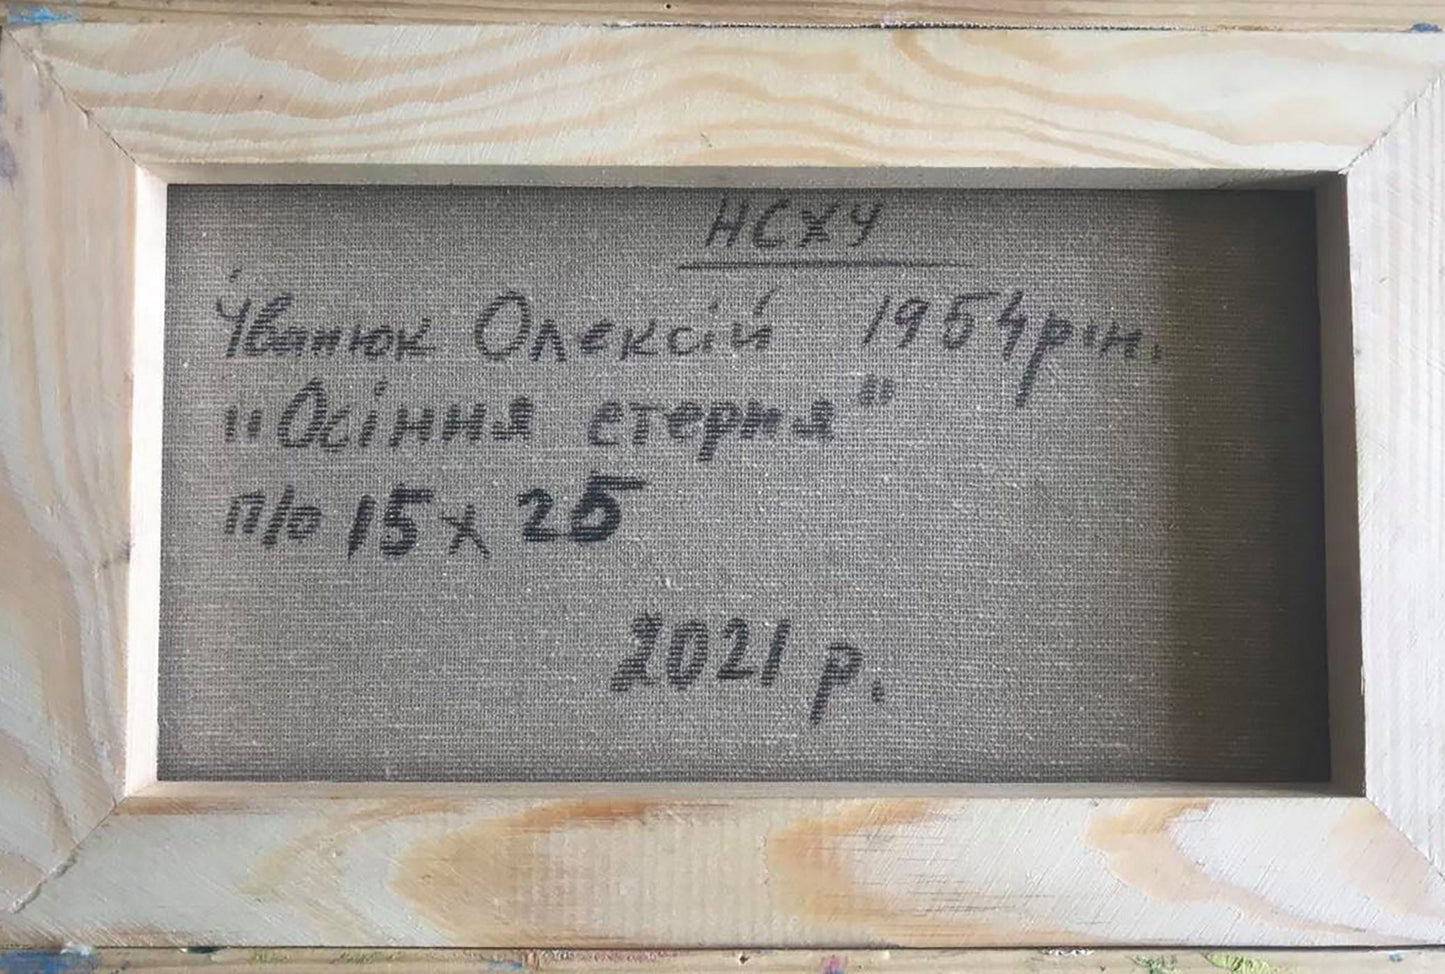 НСХУ
Іванюк Олексій 1954 р.н.
"Осіння стерня"
п/о 15х25
2021 р.